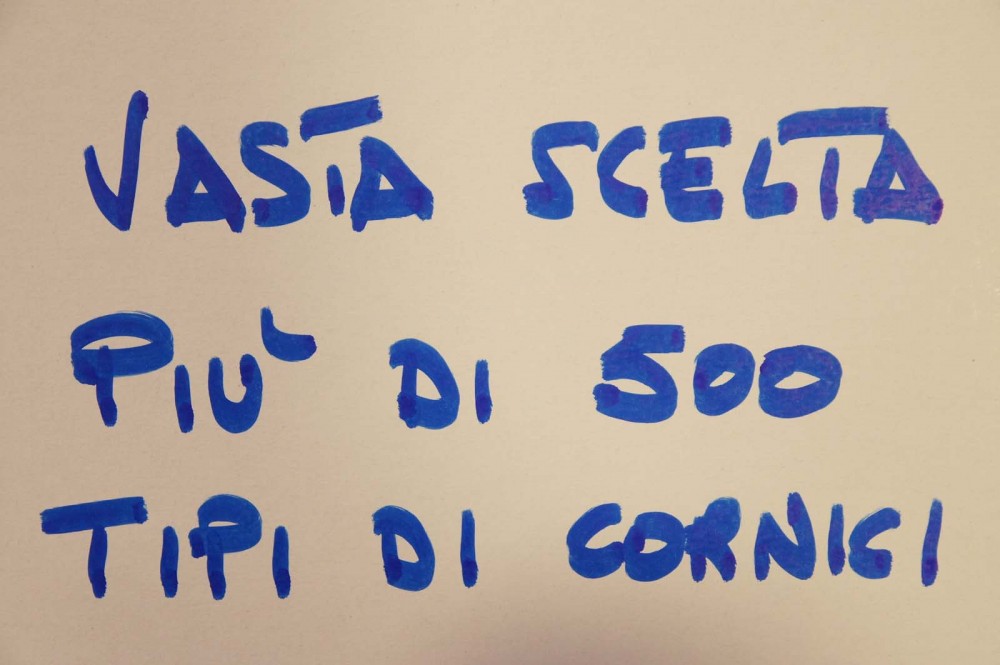 VASTA SCELTA
PIÙ DI 500
TIPI DI CORNICI